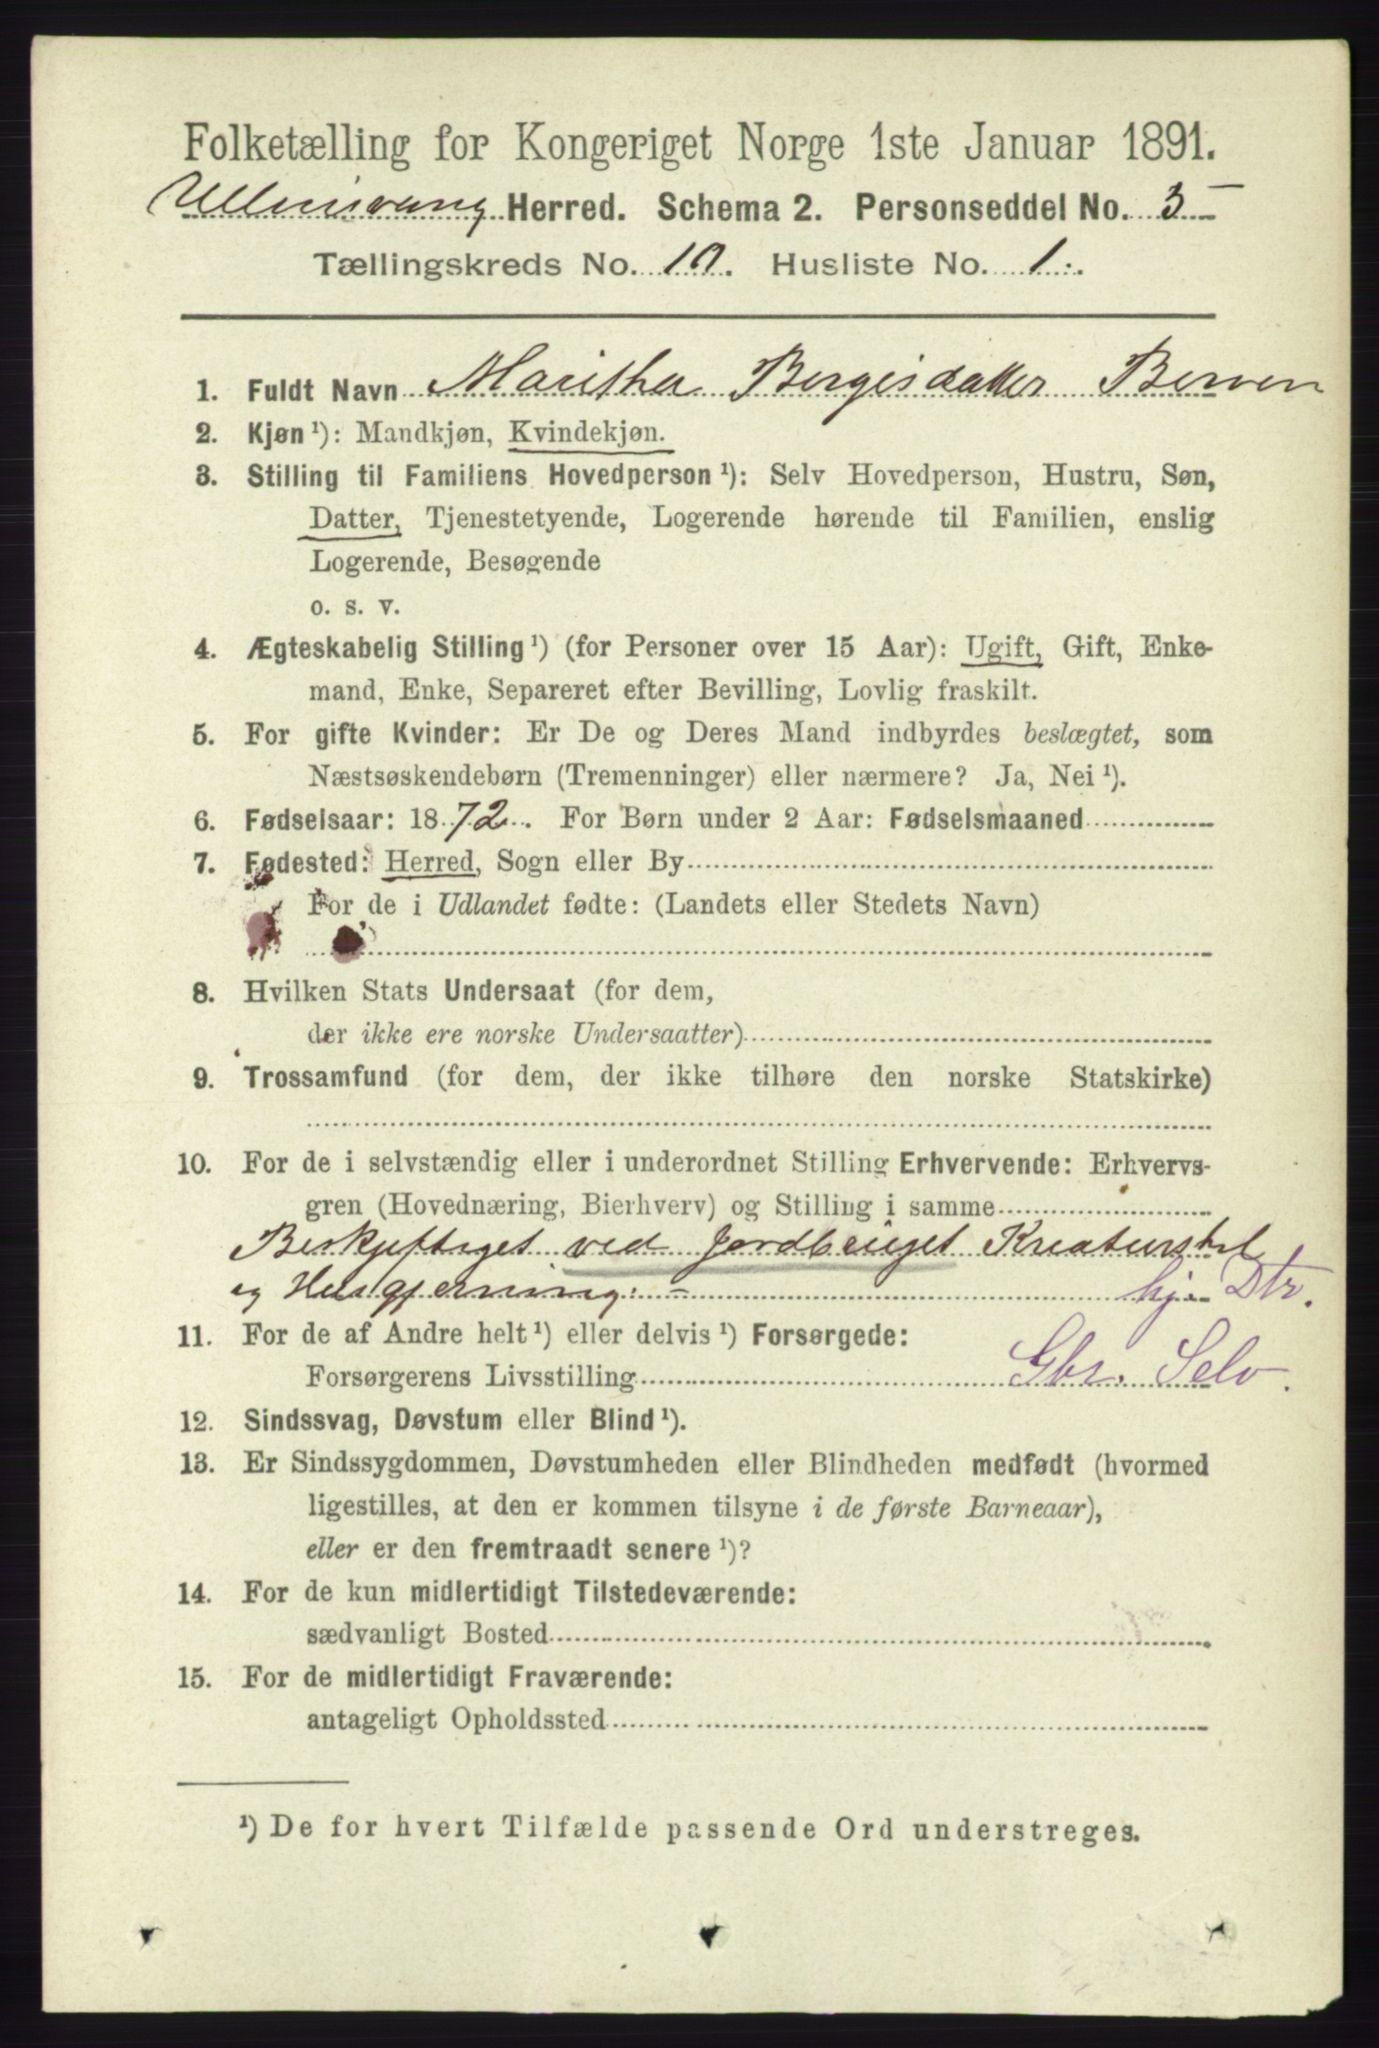 Folketælling for Kongeriget Norge 1ste Januar 1891.
Ullensvang Herred. Schema 2. Personseddel No. 3
Tællingskreds No. 10. Husliste No. 1.
1. Fuldt Navn Maritha Bergesdatter Berven
2. Kjøn ¹): Mandkjøn, Kvindekjøn.
3. Stilling til Familiens Hovedperson ¹): Selv Hovedperson, Hustru, Søn,
Datter, Tjenestetyende, Logerende hørende til Familien, enslig
Logerende, Besøgende
o. s. v.
4. Ægteskabelig Stilling ¹) (for Personer over 15 Aar): Ugift, Gift, Enke-
mand, Enke, Separeret efter Bevilling, Lovlig fraskilt.
5. For gifte Kvinder: Er De og Deres Mand indbyrdes beslægtet, som
Næstsøskendebørn (Tremenninger) eller nærmere? Ja, Nei ¹).
6. Fødselsaar: 1872. For Børn under 2 Aar: Fødselsmaaned
7. Fødested: Herred, Sogn eller By
For de i Udlandet fødte: (Landets eller Stedets Navn)
8. Hvilken Stats Undersaat (for dem,
der ikke ere norske Undersaatter)
9. Trossamfund (for dem, der ikke tilhøre den norske Statskirke)
10. For de i selvstændig eller i underordnet Stilling Erhvervende: Erhvervs-
gren (Hovednæring, Bierhverv) og Stilling i samme
Beskjeftiget ved Jordbruget Kreaturstel
og Husgjerning. hj. Dtr.
11. For de af Andre helt ¹) eller delvis ¹) Forsørgede:
Forsørgerens Livsstilling Gbr. Selv.
12. Sindssvag, Døvstum eller Blind ¹).
13. Er Sindssygdommen, Døvstumheden eller Blindheden medfødt (hvormed
ligestilles, at den er kommen tilsyne i de første Barneaar),
eller er den fremtraadt senere ¹)?
14. For de kun midlertidigt Tilstedeværende:
sædvanligt Bosted
15. For de midlertidigt Fraværende:
antageligt Opholdssted
¹) De for hvert Tilfælde passende Ord understreges.